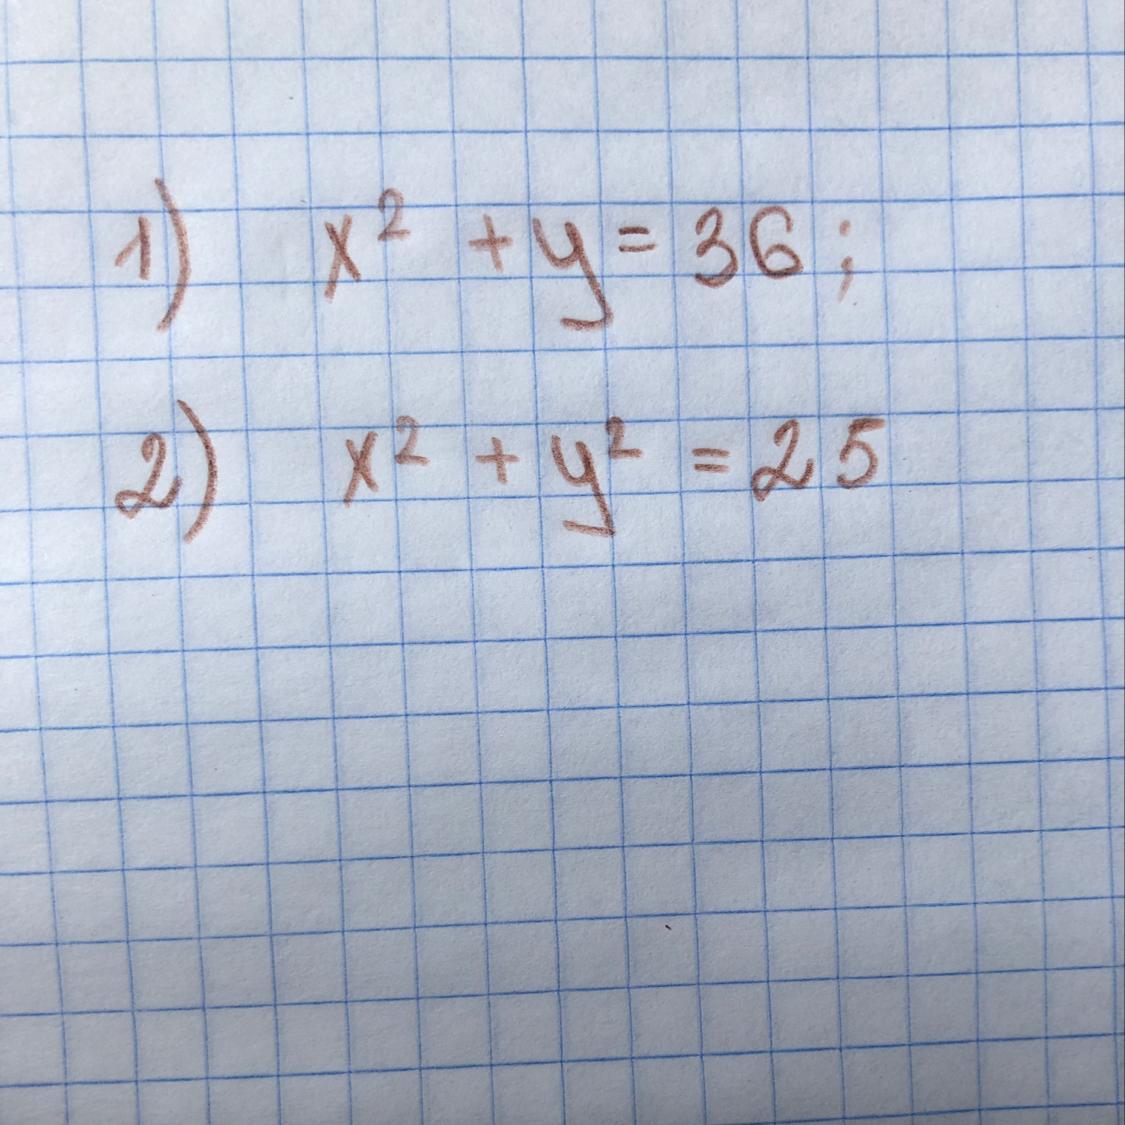 1) x² + y = 36;
2) x² + y² = 25